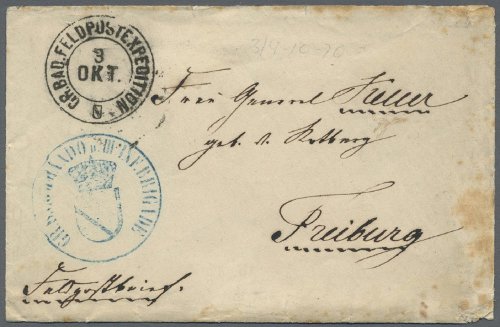 GR. BAD. FELDPOSTEXPEDITION
3
OKT.
3/4-10-70
Frau General Keller
geb. v. Rotberg
Freiburg
Feldpostbrief.